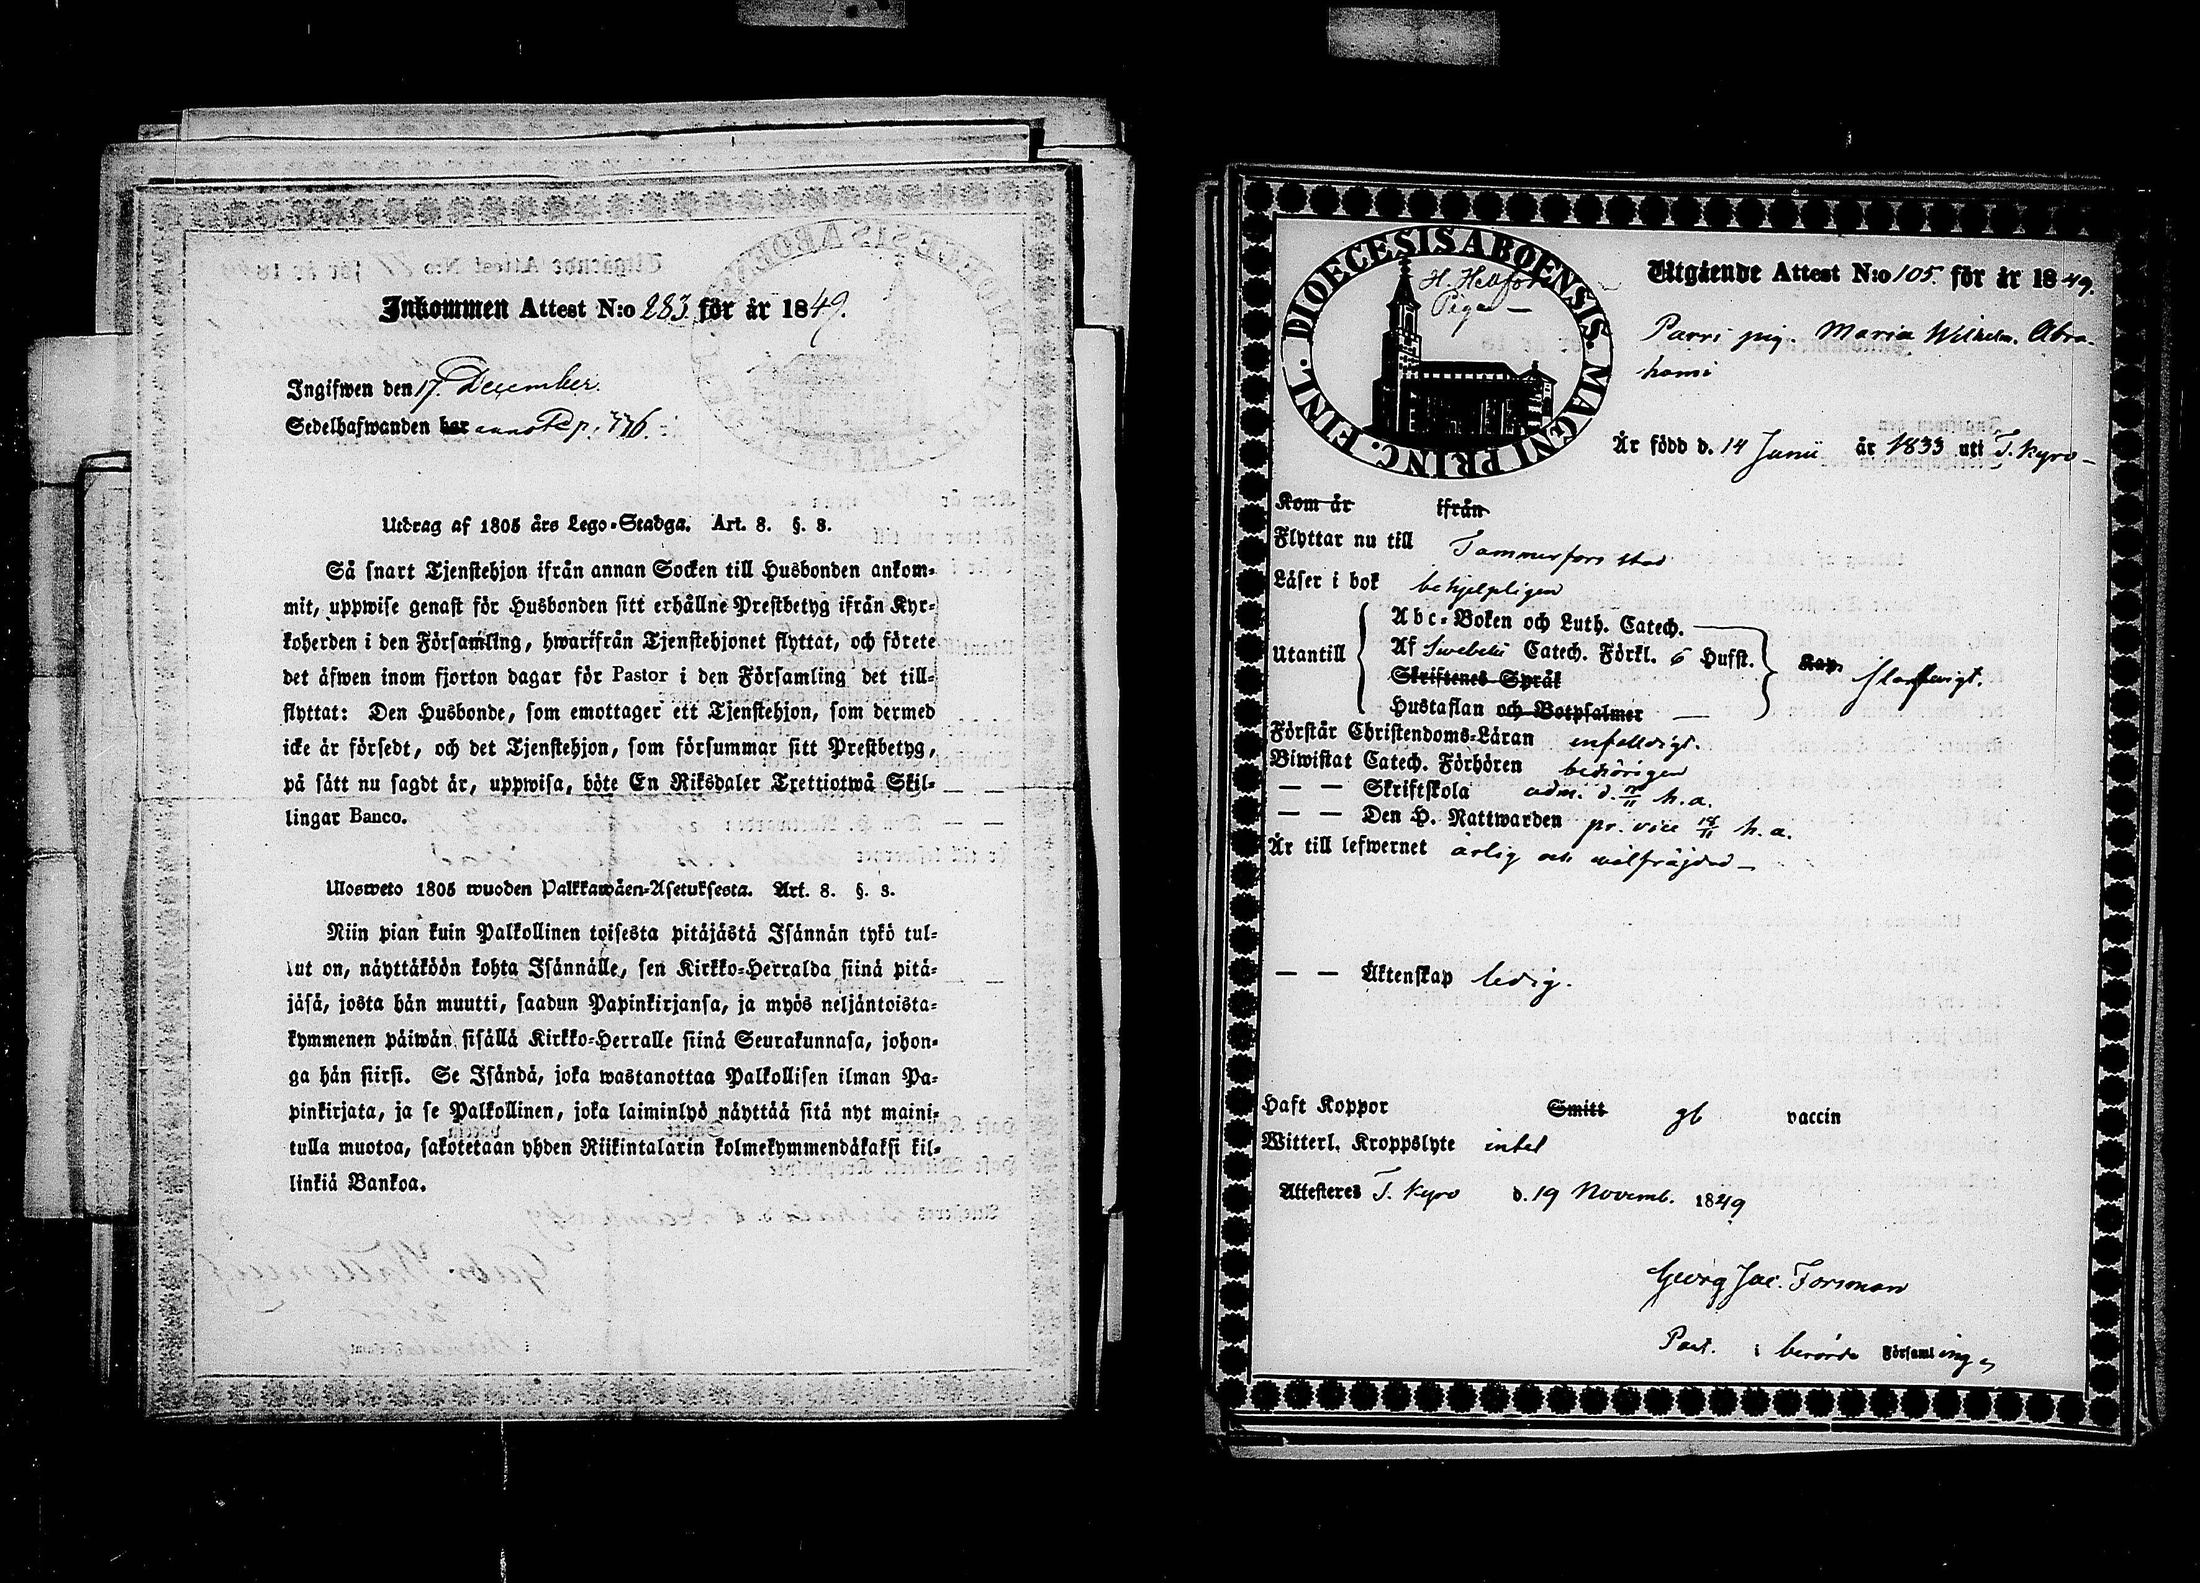 Inkommen Attest N:o 283 för år 1849.
Ingifwen den 17. December.
Sedelhafwanden har annot. p. 776.
Utdrag af 1805 års Lego-Stadga. Art. 8. §. 3.
Så snart Tjenstehjon ifrån annan Socken till Husbonden ankom-
mit, uppwise genast för Husbonden sitt erhållne Prestbetyg ifrån Kyr-
koherden i den Församling, hwarifrån Tjenstehjonet flyttat, och förete
det äfwen inom fjorton dagar för Pastor i den Församling det till-
flyttat: Den Husbonde, som emottager ett Tjenstehjon, som dermed
icke är försedt, och det Tjenstehjon, som försummar sitt Prestbetyg,
på sätt nu sagdt är, uppwisa, böte En Riksdaler Trettiotwå Skil-
lingar Banco.
Ulosweto 1805 wuoden Palkkawäen-Asetuksesta. Art. 8. §. 3.
Niin pian kuin Palkollinen toisesta pitäjästä Isännän tykö tul-
lut on, näyttäköön kohta Isännälle, sen Kirkko-Herralda siinä pitä-
jäsä, josta hän muutti, saadun Papinkirjansa, ja myös neljäntoista-
kymmenen päiwän sisällä Kirkko-Herralle siinä Seurakunnasa, johon-
ga hän siirsi. Se Isändä, joka wastanottaa Palkollisen ilman Pa-
pinkirjata, ja se Palkollinen, joka laiminlyö näyttää sitä nyt maini-
tulla muotoa, sakotetaan yhden Riikintalarin kolmekymmendäkaksi kil-
linkiä Bankoa.
DIOECESIS ABOENSIS. MAGNI PRINC. FINL.
Piga —
Utgående Attest N:o 105. för år 1849.
Parri pig. Maria Wilhelm. Abra-
hami
Är född d. 14 Junii år 1833 uti T. Kyro —
Kom år ifrån
Flyttar nu till Tammerfors stad
Läser i bok behjelpligen
Utantill
Abc-Boken och Luth. Catech.
Af Swebelii Catech. Förkl. 6 Hufst.
Skriftenes Språk
Hustaflan och Botpsalmer —
Kap.
Förstår Christendoms-Läran enfaldigt.
Biwistat Catech. Förhören behörigen
— — Skriftskola adm. d. h. a.
— — Den H. Nattwarden pr. vice 18/11 h. a.
Är till lefwernet ärlig och wälfräjdad —
— — Äktenskap ledig.
Haft Koppor Smitt gl vaccin
Witterl. Kroppslyte intet
Attesteres T. Kyro d. 19 Novemb. 1849
Georg Jac. Forsman
Past. i berörde Församlingen